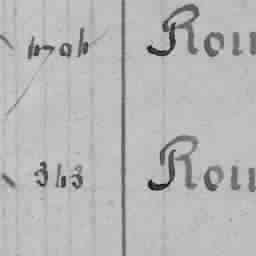 4704 Rou
343 Rou